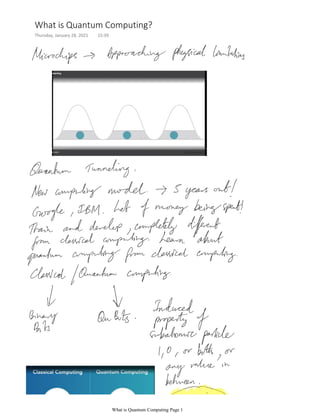 What is Quantum Computing?
Thursday, January 28, 2021
Microchips → Approaching physical limitations
Quantum Tunneling.
New computing model. → 5 years out!
Google, IBM. Lot of money being spent!
Train and develop, completely different
from classical computing. Learn about
quantum computing from classical computing.
Classical / Quantum computing.
Binary
Bits
Qu Bits.
Induced
property of
subatomic particle
1, 0, or both, or
any value in
between.
Classical Computing
Quantum Computing
What is Quantum Computing Page 1